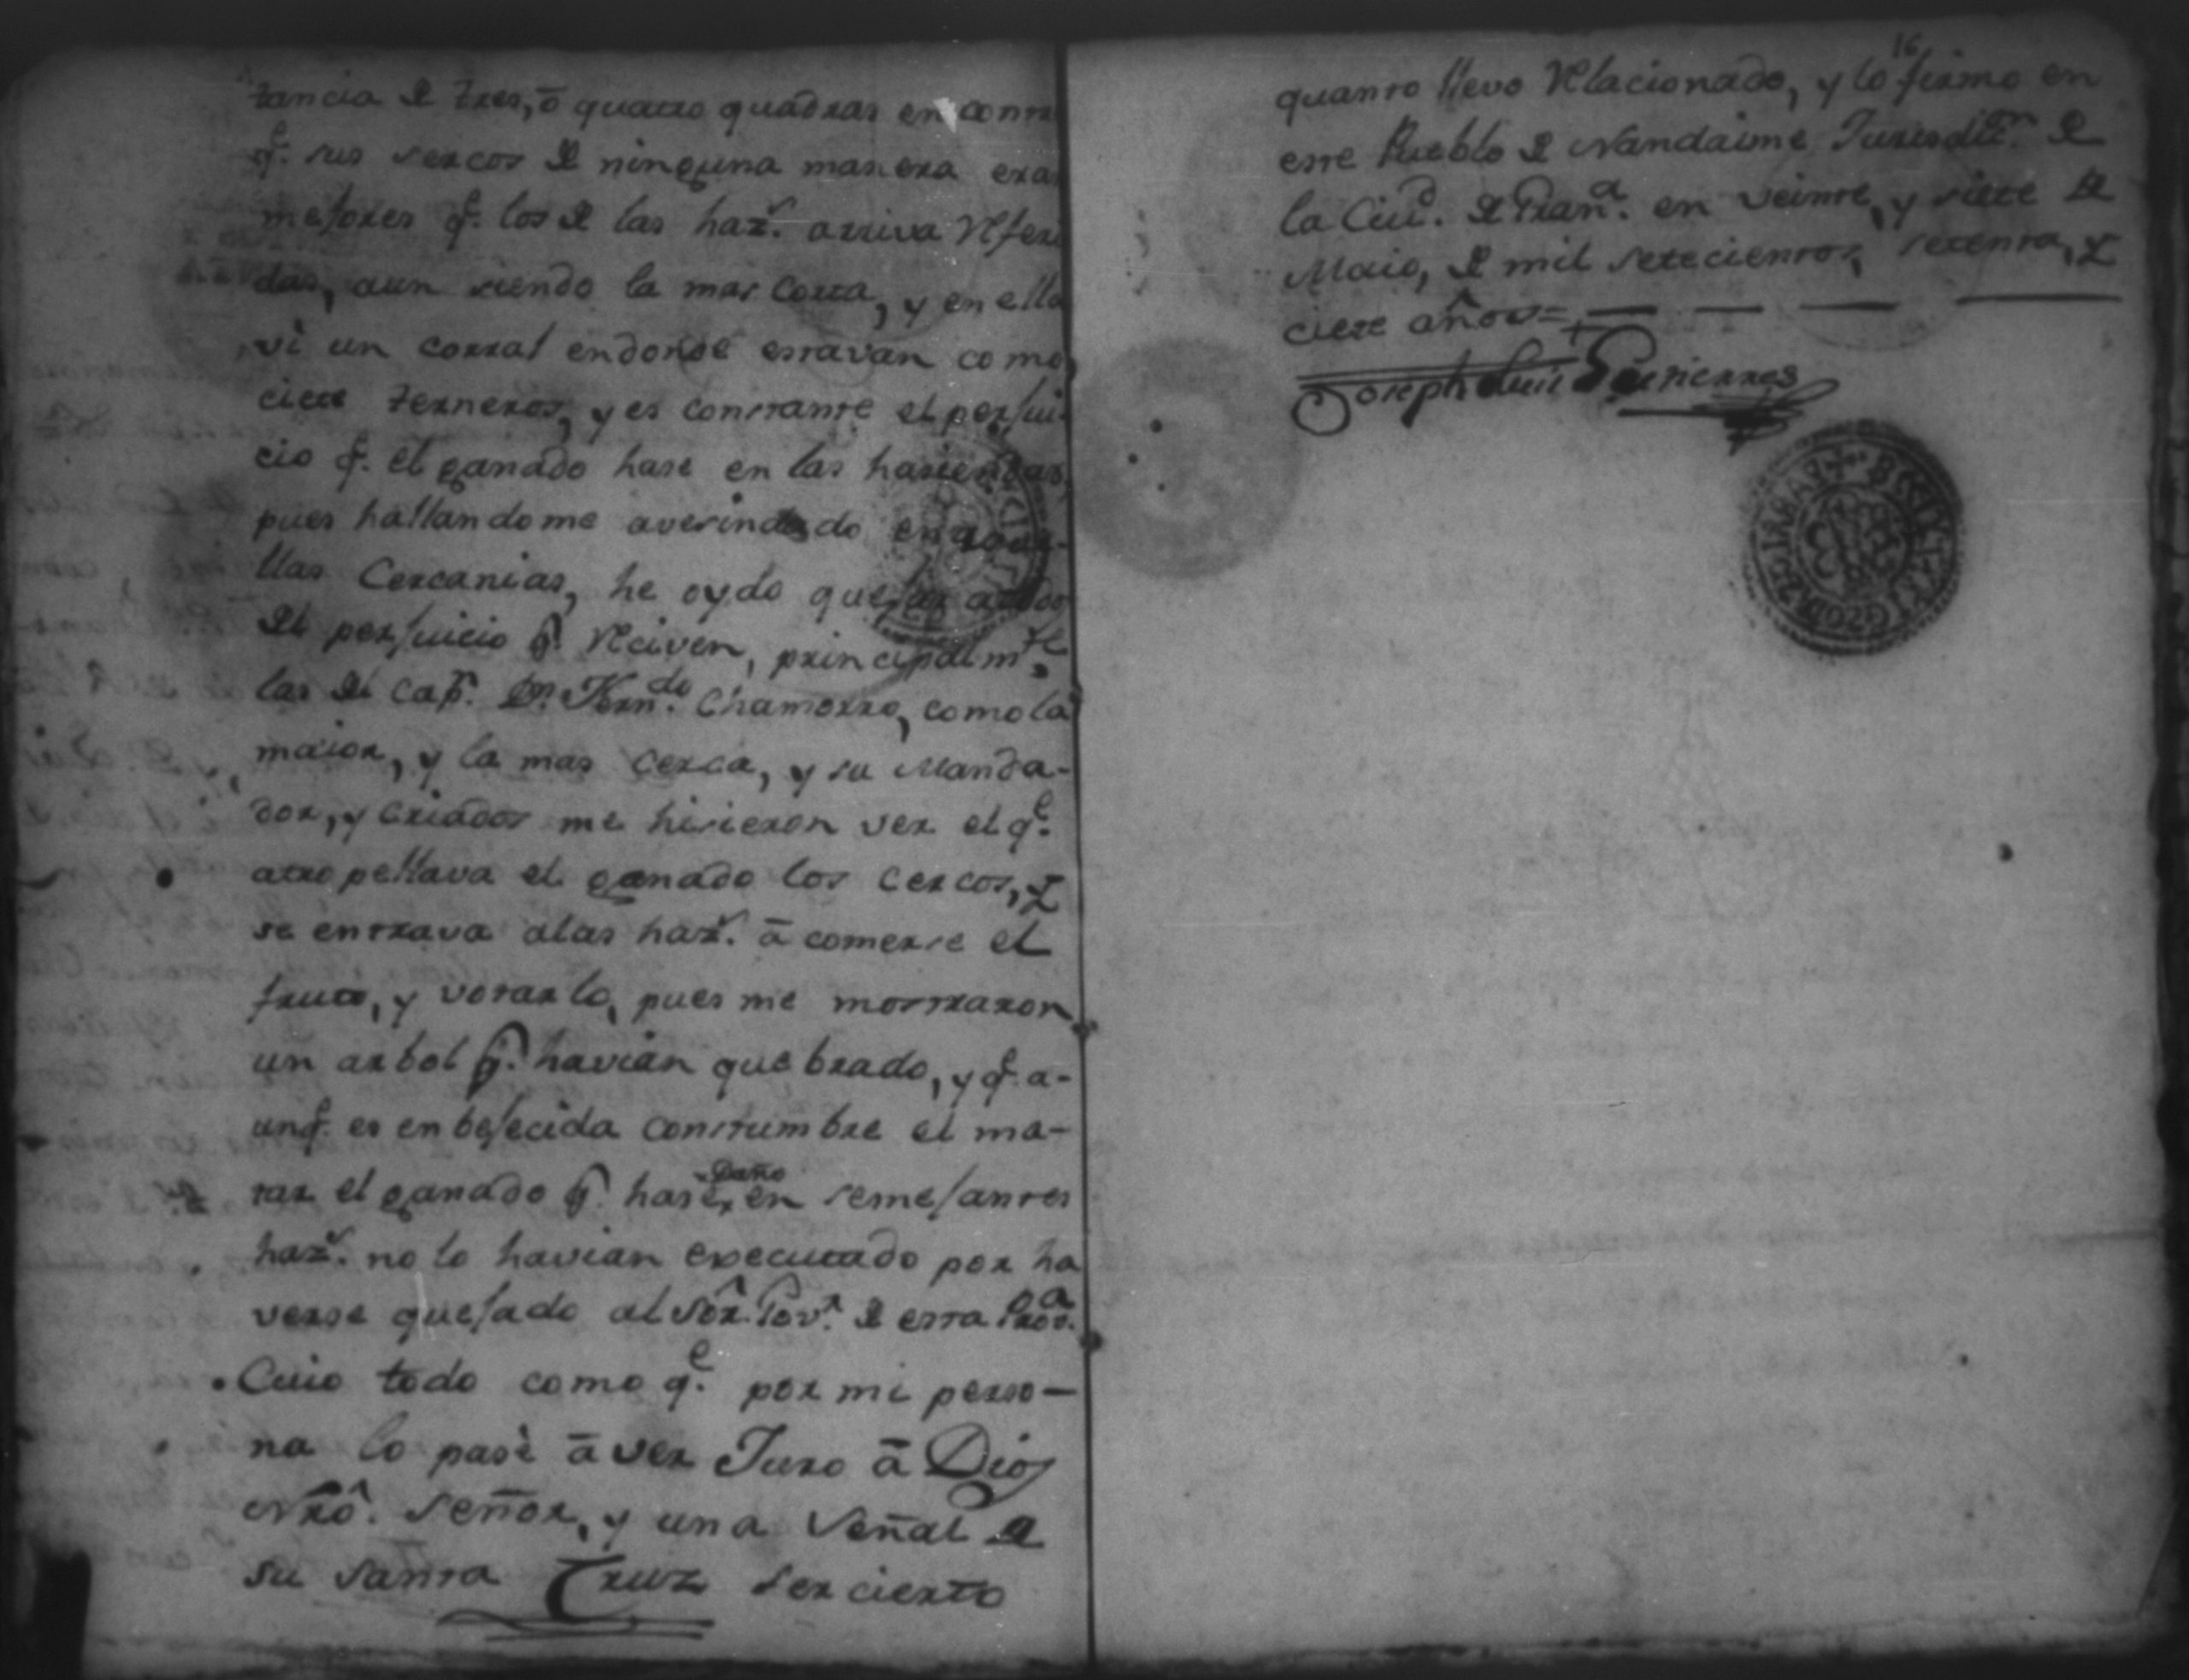 tancia de tres, ō quatro quadras en contr
q.e sus sercos de ninguna manera era
mejores q.e los de las haz.s arriva refer
das, aun siendo la mas corta, y en ella
vi un corral endonde estavan como
ciete terneros, y es constante el perjui-
cio q.e el ganado hase en las hasiendas,
pues hallandome avesindado en aque-
llas Cercanias, he oydo quejar
del perjuicio q.e reciven, principalm.te
las del Cap.n D.n Fern.do Chamorro, como la
maior, y la mas cerca, y su Manda-
dor, y criados me hisieron ver el q.e
atropellava el ganado los cercos, y
se entrava a las haz.s ā comerse el
fruto, y votarlo, pues me mostraron
un arbol q.e havian quebrado, y q.e a-
unq.e es enbejecida constumbre el ma-
tar el ganado q.e hase daño en semejantes
haz.s no lo havian executado por ha
verse quejado al Sōr. Gov.r de esta Prov.a
Cuio todo como q.e por mi perso-
na lo pasè ā ver Juro ā Dios
Nrō. Señor, y una Señal de
su Santa Cruz ser cierto
16
quanto llevo relacionado, y lo firmo en
este Pueblo de Nandaime Jurisdic.n de
la Ciu.d de Gran.a en veinte, y siete de
Maio, de mil setecientos, setenta, y
ciete años=
Joseph Luis Gutierres